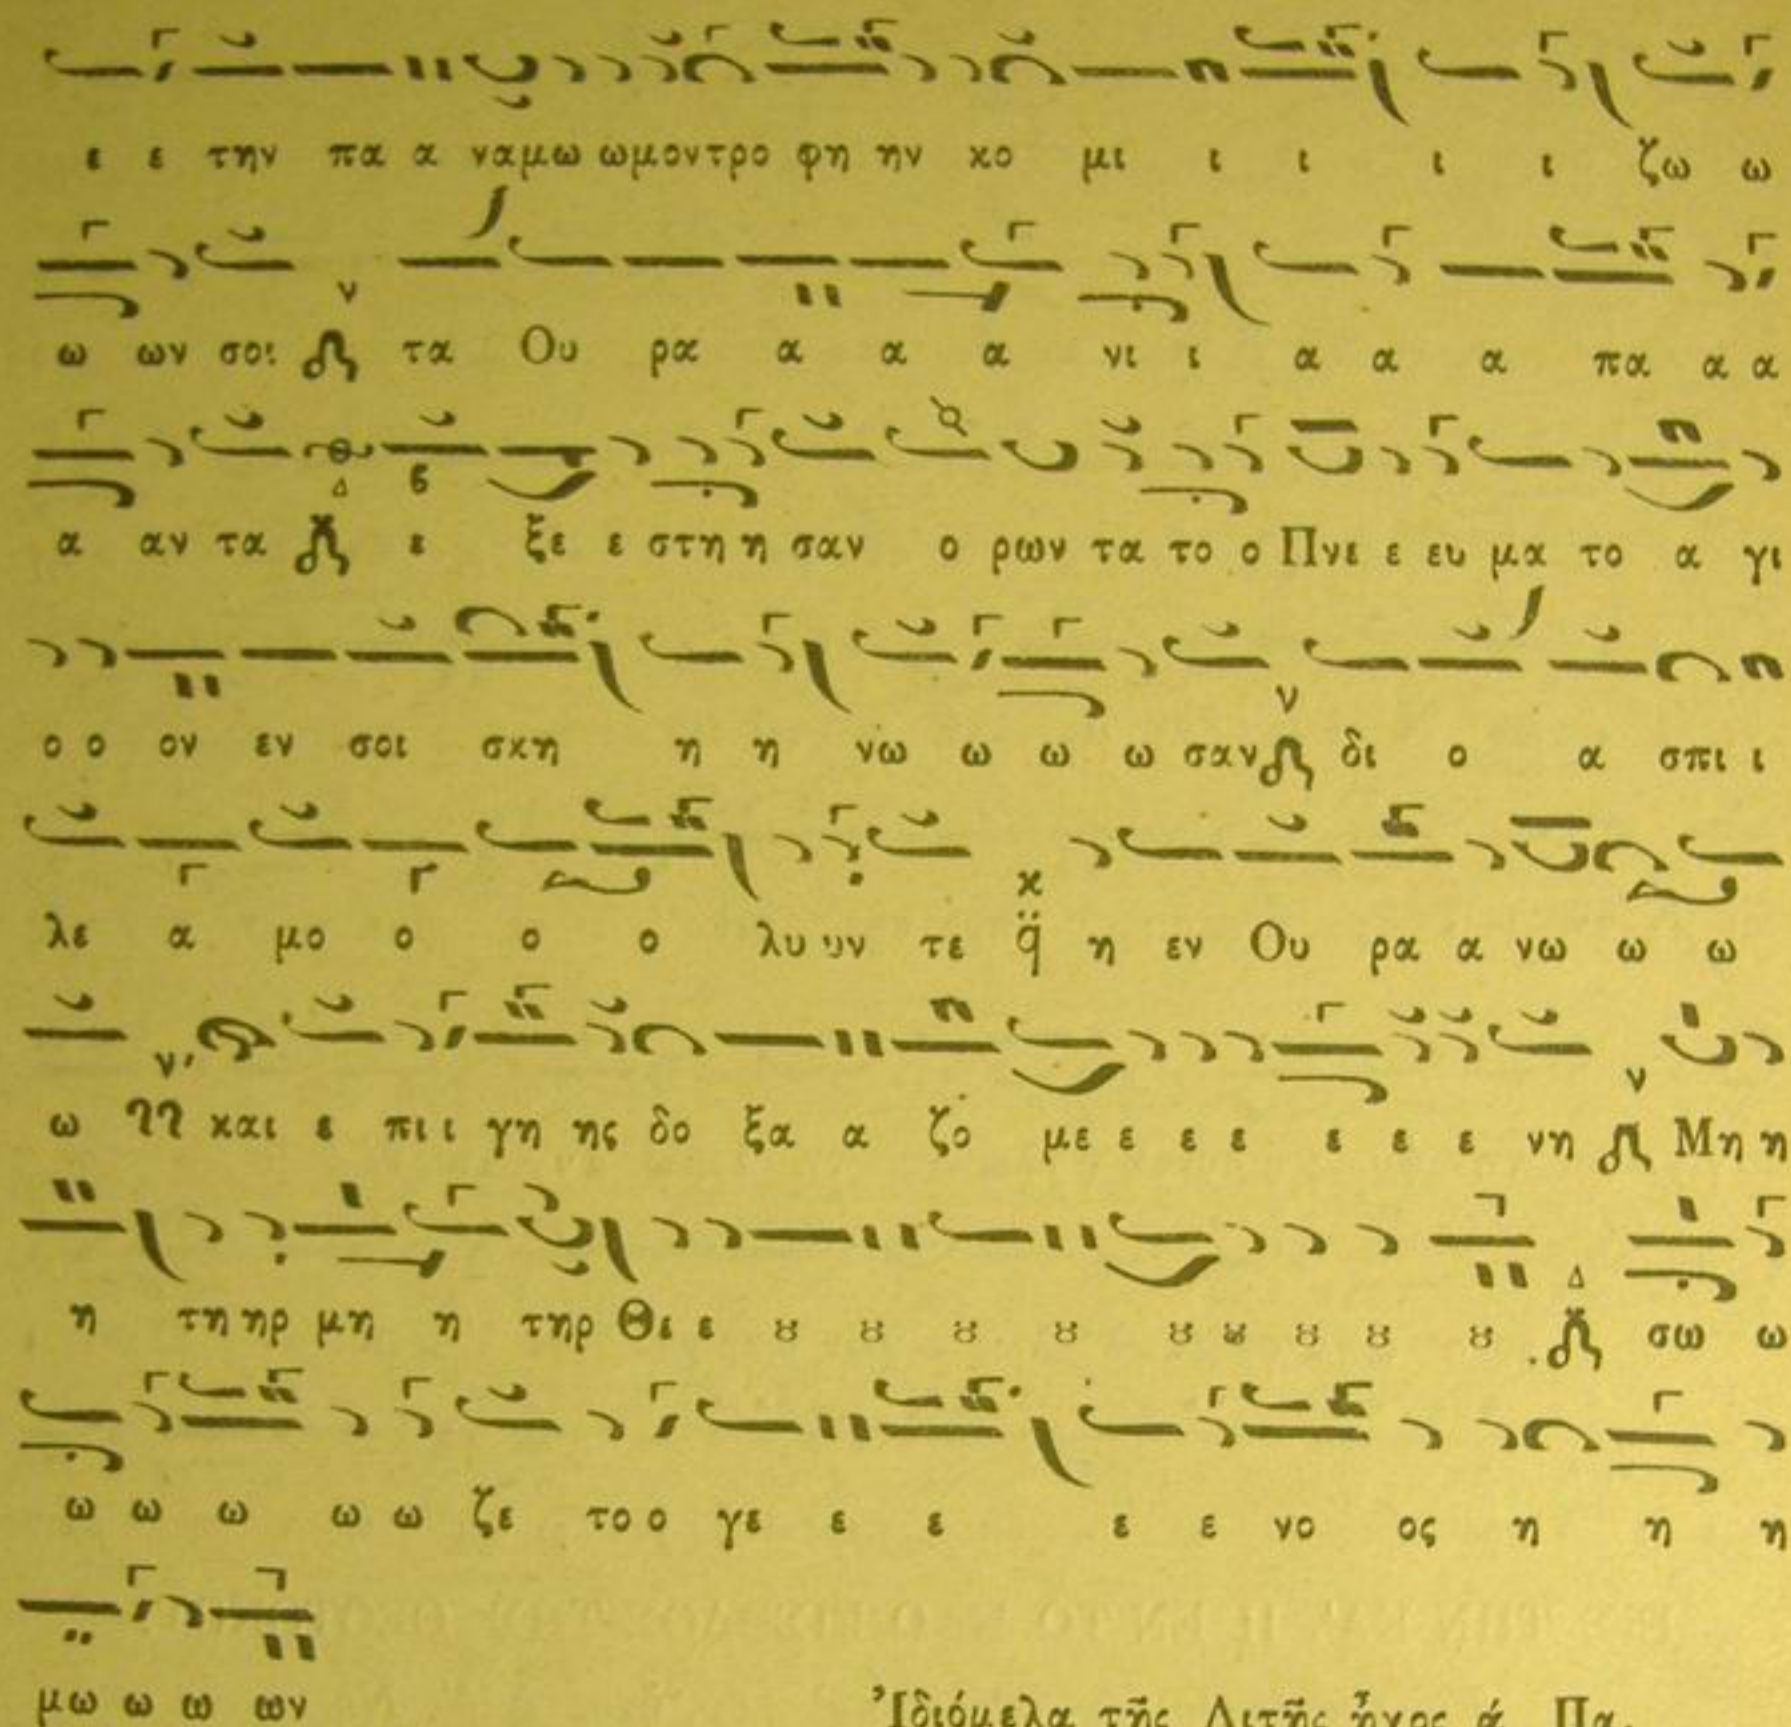 ε ε την πα α ναμω ωμοντρο φη ην κο μι ι ι ι ι ζω ω
ω ων σοι τα Ου ρα α α α νι ι α α α πα α α
α αν τα ε ξε ε στη η σαν ο ρων τα το ο Πνε ε ευ μα το α γι
ο ο ον εν σοι σκη η η νω ω ω ω σαν δι ο α σπι ι
λε α μο ο ο ο λυ υν τε η εν Ου ρα α νω ω ω
ω και ε πι ι γη ης δο ξα α ζο με ε ε ε ε ε ε νη Μη η
η τη ηρ μη η τηρ Θε ε ȣ ȣ ȣ ȣ ȣ ȣ ȣ ȣ ȣ σω ω
ω ω ω ω ω ζε το ο γε ε ε ε ε νο ος η η η
μω ω ω ων
Ἰδιόμελα τῆς Λιτῆς ἦχος ά Πα.